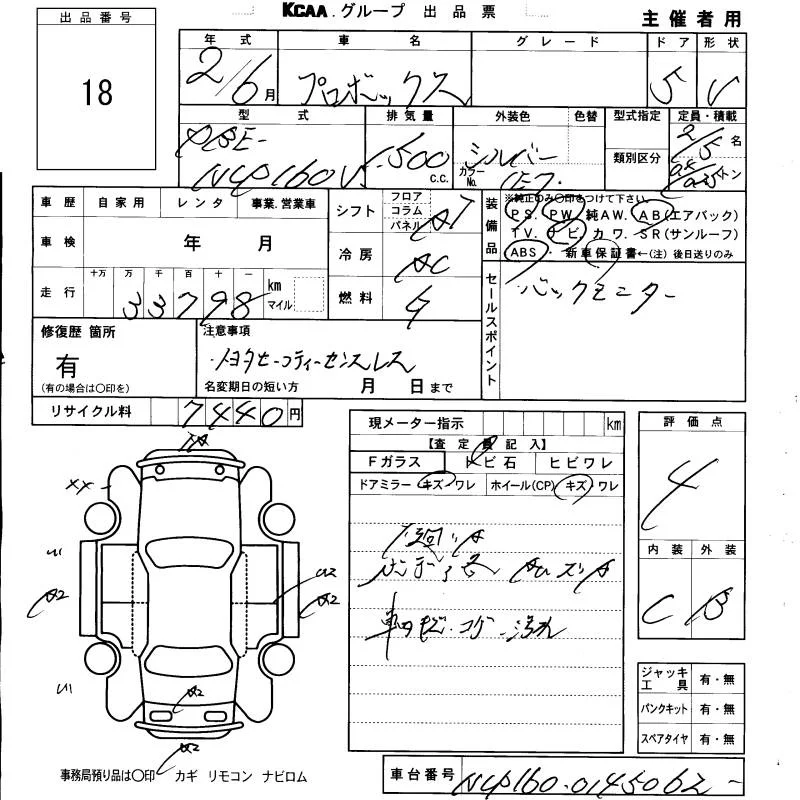 KCAA.グループ 出品票
主催者用
出品番号
18
年式 車名 グレード ドア 形状
2/6月 プロボックス 5 V
型式 排気量 外装色 色替 型式指定 定員・積載
DBE-
NCP160V 1500 c.c. シルバー カラーNo. 1E7 類別区分 2/5名
トン
車歴 自家用 レンタ 事業.営業車
車検 年 月
走行 十万 万 千 百 十 一 km マイル
33798
シフト フロア コラム パネル AT
冷房 AC
燃料 G
装備品 ※純正のみ〇印をつけて下さい。
PS. PW. 純AW. AB(エアバック)
TV. ナビ. カワ. SR(サンルーフ)
ABS・新車保証書←(注)後日送りのみ
セールスポイント
バックモニター
修復歴 箇所
有
(有の場合は〇印を)
注意事項
トヨタセーフティーセンスレス
名変期日の短い方 月 日まで
リサイクル料 7440円
現メーター指示 km
【査定員記入】
Fガラス トビ石 ヒビワレ
ドアミラー キズ ワレ ホイール(CP) キズ ワレ
車内
汚れ
評価点
4
内装 外装
C B
XX
A2
A2
U2
A2
A2
ジャッキ工具 有・無
パンクキット 有・無
スペアタイヤ 有・無
事務局預り品は〇印 カギ リモコン ナビロム
車台番号 NCP160-0145062